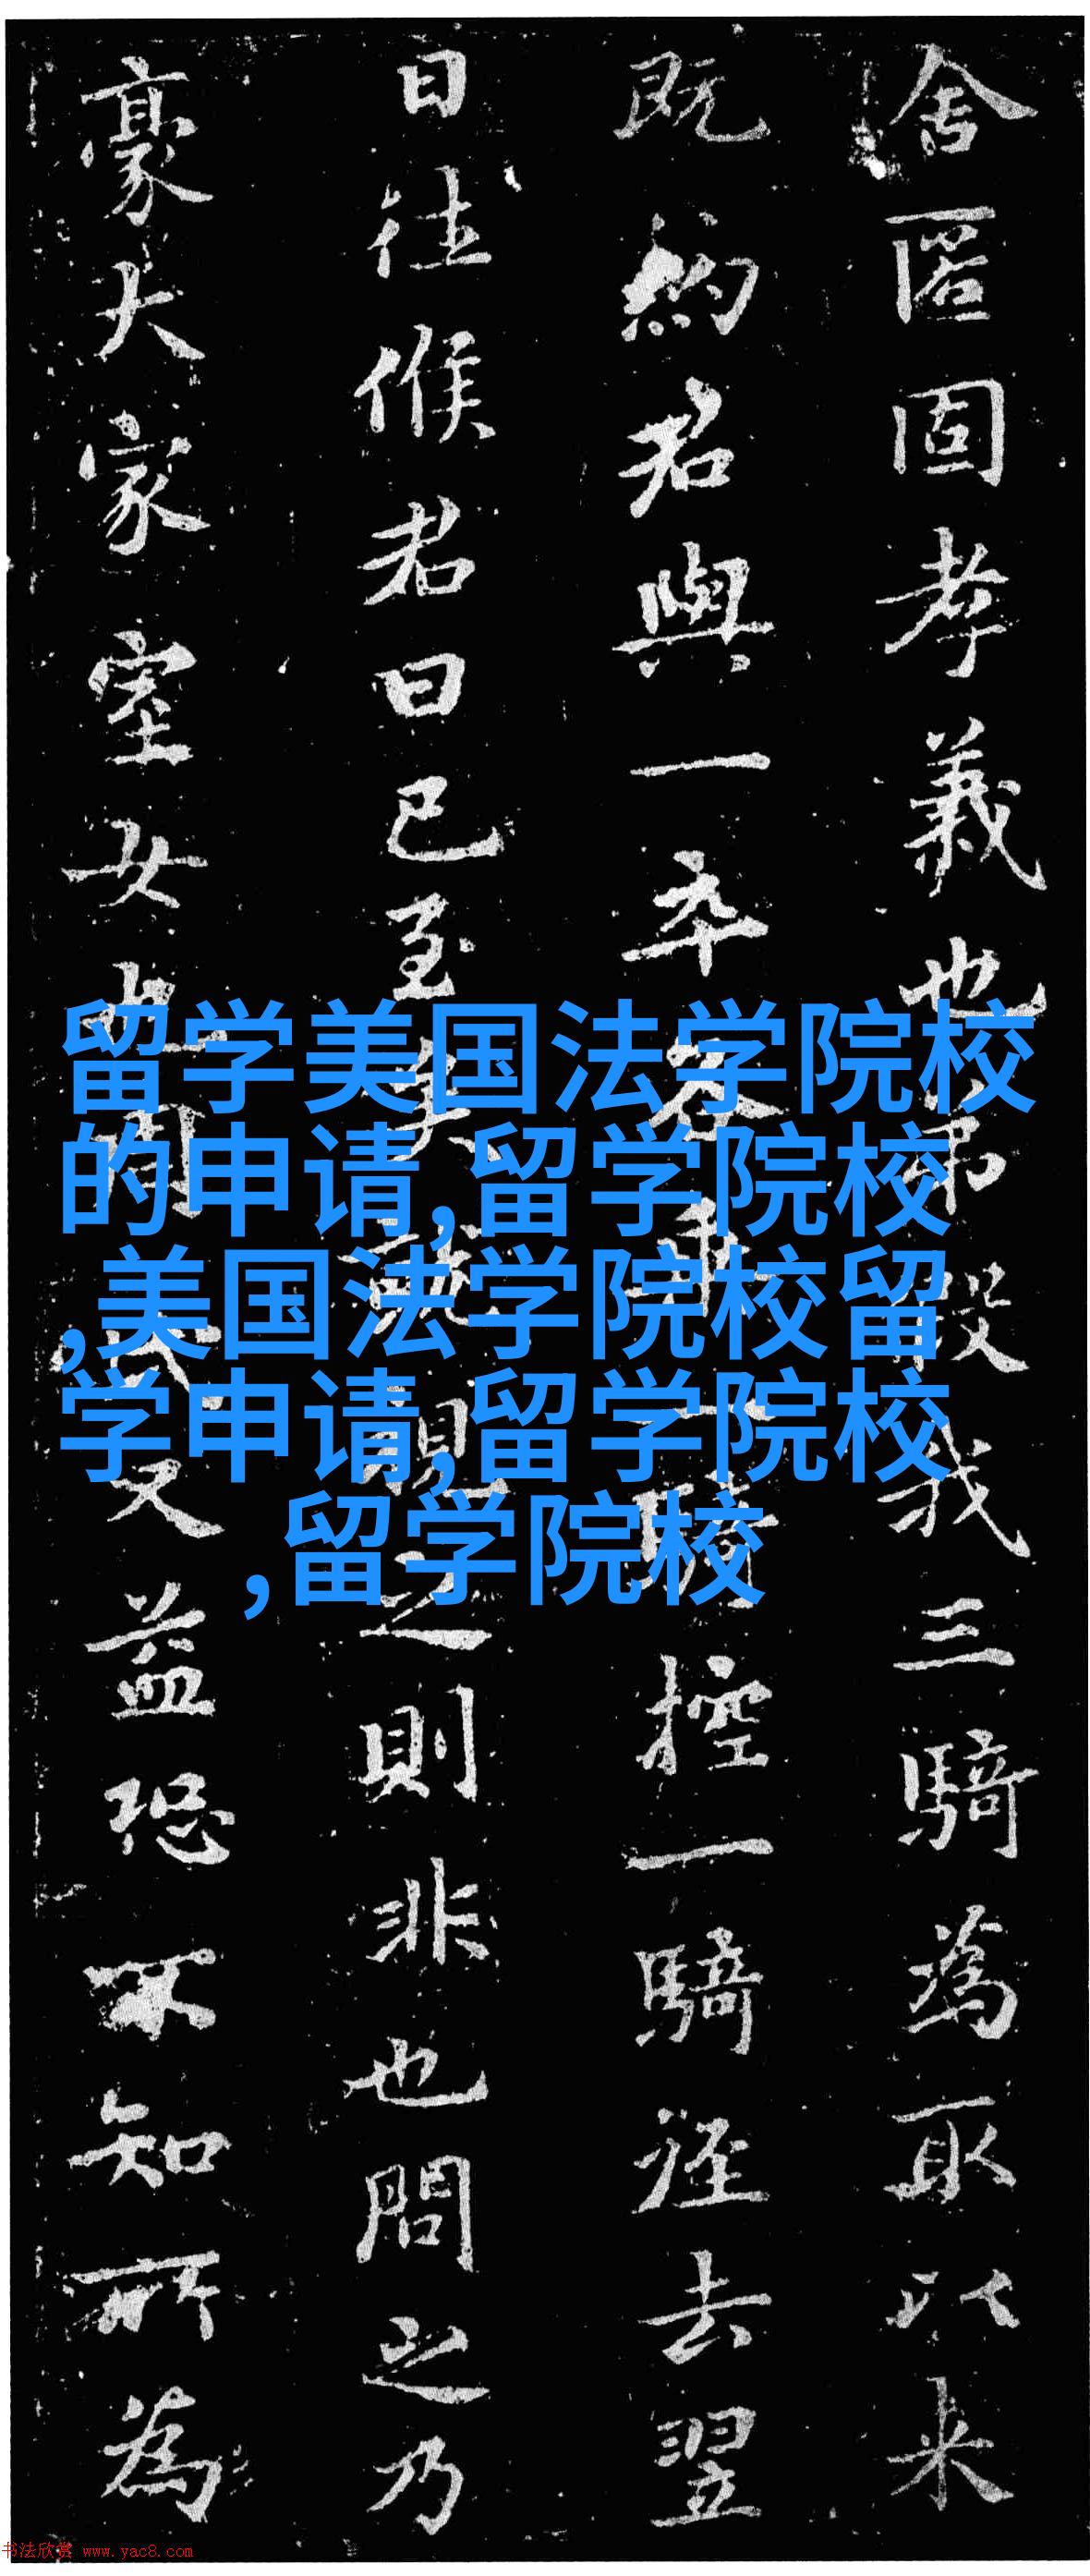 舍匿固孝義也我三騎為取以来
既約君與一卒控一騎徑去翌
日往候君曰已至矣之則非也問之乃
豪大家室女也又益恐不知所為
留学美国法学院校
的申请,留学院校
,美国法学院校留
学申请,留学院校
,留学院校
书法欣赏 www.yac8.com